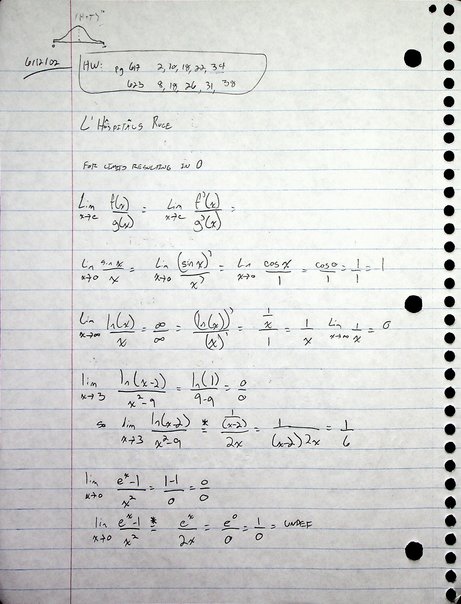 6/12/02
HW: pg 617 2, 10, 18, 22, 34
623 8, 18, 26, 31, 38
L'Hôspitâls Rule
FOR LIMITS RESULTING IN 0
Lim x→c f(x)/g(x) = Lim x→c f'(x)/g'(x) =
Lim x→0 sin x/x = Lim x→0 (sin x)'/x' = Lim x→0 cos x/1 = cos 0/1 = 1/1 = 1
Lim x→∞ ln(x)/x = ∞/∞ = (ln(x))'/(x)' = (1/x)/1 = 1/x Lim x→∞ 1/x = 0
lim x→3 ln(x-2)/x²-9 = ln(1)/9-9 = 0/0
so lim x→3 ln(x-2)/x²-9 *= (1/(x-2))/2x = 1/(x-2)2x = 1/6
lim x→0 eˣ-1/x² = 1-1/0 = 0/0
lim x→0 eˣ-1/x² *= eˣ/2x = e⁰/0 = 1/0 = UNDEF